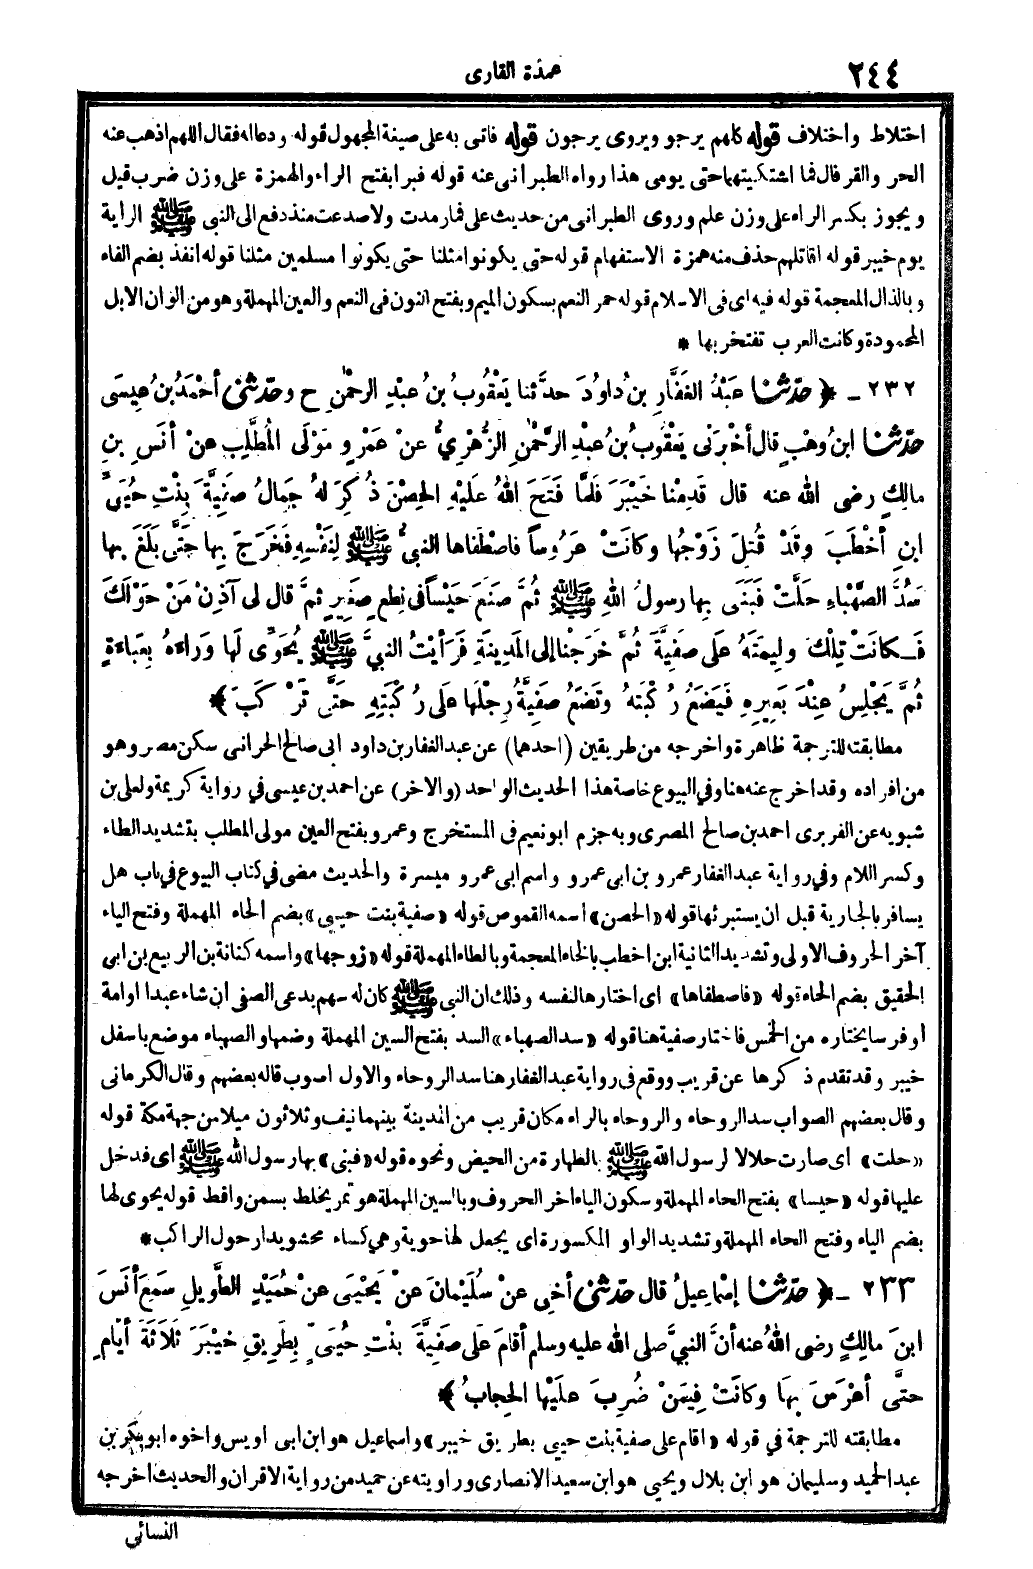 ٢٤٤
عمدة القارى
اختلاط واختلاف قوله كلهم يرجو ويروى يرجون قوله فاتى به على صيغة المجهول قوله ودعا له فقال اللهم اذهب عنه
الحر والقر قال فما اشتكيتهما حتى يومى هذا رواه الطبرانى عنه قوله فبرا بفتح الراء والهمزة على وزن ضرب قيل
ويجوز بكسر الراء على وزن علم وروى الطبرانى من حديث على فما رمدت ولا صدعت منذ دفع الى النبى ﷺ الراية
يوم خيبر قوله اقاتلهم حذف منه همزة الاستفهام قوله حتى يكونوا مثلنا حتى يكونوا مسلمين مثلنا قوله انفذ بضم الفاء
وبالذال المعجمة قوله فيه اى فى الاسلام قوله حمر النعم بسكون الميم وبفتح النون فى النعم والعين المهملة وهو من الوان الابل
المحمودة وكانت العرب تفتخر بها *
٢٣٢ - ﴿ حَدَّثَنَا عَبْدُ الغَفَّارِ بنُ دَاوُدَ حدَّثنا يَعْقُوبُ بنُ عبْدِ الرحْمٰنِ ح وحَدَّثنى أحْمَدُ بنُ عِيسَى
حَدَّثَنَا ابنُ وهْبٍ قال أخْبرَنى يَعْقُوبُ بنُ عبْدِ الرَّحْمٰنِ الزُّهْرِىُّ عنْ عَمْرٍو مَوْلَى المُطَّلِبِ عنْ أنَسِ بنِ
مالِكٍ رضى الله عنه قال قَدِمْنا خَيْبَرَ فَلَمَّا فَتَحَ اللهُ علَيْهِ الحِصْنَ ذُكِرَ لهُ جَمالُ صَفِيَّةَ بِنْتِ حُيَىِّ
ابنِ أخْطَبَ وقَدْ قُتِلَ زَوْجُها وكانَتْ عَرُوساً فاصْطَفاها النبىُّ ﷺ لِنَفْسِهِ فخَرَجَ بِها حَتَّى بلَغَ بِها
سَدَّ الصَّهْباءِ حلَّتْ فبَنَى بِها رسولُ اللهِ ﷺ ثُمَّ صنَعَ حَيْساً فى نِطَعٍ صغِيرٍ ثمَّ قال لى آذِنْ مَنْ حَوْلَكَ
فَكانَتْ تِلْكَ ولِيمَتَهُ على صَفِيَّةَ ثُمَّ خرَجْنا إلى المَدِينَةِ فرَأيْتُ النبىَّ ﷺ يُحَوِّى لَها ورَاءهُ بِعَباءةٍ
ثُمَّ يَجْلِسُ عِنْدَ بَعِيرِهِ فَيَضَعُ رُكْبَتَهُ وتَضَعُ صَفِيَّةُ رِجْلَها علَى رُكْبَتِهِ حَتَّى تَرْكَبَ ﴾
مطابقته للترجمة ظاهرة واخرجه من طريقين (احدهما) عن عبد الغفار بن داود ابى صالح الحرانى سكن مصر وهو
من افراده وقد اخرج عنه هنا وفي البيوع خاصة هذا الحديث الواحد (والآخر) عن احمد بن عيسى في رواية كريمة ولعلى بن
شبويه عن الفربرى احمد بن صالح المصرى وبه جزم ابو نعيم فى المستخرج وعمرو بفتح العين مولى المطلب بتشديد الطاء
وكسر اللام وفي رواية عبد الغفار عمرو بن ابى عمرو واسم ابى عمرو ميسرة والحديث مضى فى كتاب البيوع فى باب هل
يسافر بالجارية قبل ان يستبرئها قوله «الحصن» اسمه القموص قوله «صفية بنت حيى» بضم الحاء المهملة وفتح الياء
آخر الحروف الاولى وتشديد الثانية ابن اخطب بالخاء المعجمة وبالطاء المهملة قوله «زوجها» واسمه كنانة بن الربيع بن ابى
الحقيق بضم الحاء قوله «فاصطفاها» اى اختارها لنفسه وذلك ان النبى ﷺ كان له سهم يدعى الصفى ان شاء عبدا او امة
او فرسا يختاره من الخمس فاختار صفية هنا قوله «سد الصهباء» السد بفتح السين المهملة وضمها والصهباء موضع باسفل
خيبر وقد تقدم ذكرها عن قريب ووقع فى رواية عبد الغفار هنا سد الروحاء والاول اصوب قاله بعضهم وقال الكرمانى
وقال بعضهم الصواب سد الروحاء والروحاء بالراء مكان قريب من المدينة بينهما نيف وثلاثون ميلا من جهة مكة قوله
«حلت» اى صارت حلالا لرسول الله ﷺ بالطهارة من الحيض ونحوه قوله «فبنى» بها رسول الله ﷺ اى فدخل
عليها قوله «حيسا» بفتح الحاء المهملة وسكون الياء اخر الحروف وبالسين المهملة هو تمر يخلط بسمن واقط قوله يحوى لها
بضم الياء وفتح الحاء المهملة وتشديد الواو المكسورة اى يجعل لها حوية وهي كساء محشو يدار حول الراكب *
٢٣٣ - ﴿ حَدَّثَنَا إسْماعِيلُ قال حَدَّثنى أخِى عنْ سُلَيْمانَ عنْ يَحْيَى عنْ حُمَيْدٍ الطَّوِيلِ سَمِعَ أنَسَ
ابنَ مالِكٍ رضى اللهُ عنه أنَّ النبىَّ صلى الله عليه وسلم أقامَ علَى صَفِيَّةَ بنْتِ حُيَىٍّ بِطَرِيقِ خَيْبَرَ ثَلاَثَةَ أيَّامٍ
حتَّى أعْرَسَ بِهَا وكانَتْ فِيمَنْ ضُرِبَ علَيْها الحِجابُ ﴾
مطابقته للترجمة في قوله «اقام على صفية بنت حيى بطريق خيبر» واسماعيل هو ابن ابى اويس واخوه ابو بكر بن
عبد الحميد وسليمان هو ابن بلال ويحيى هو ابن سعيد الانصارى وروايته عن حميد من رواية الاقران والحديث اخرجه
النسائى